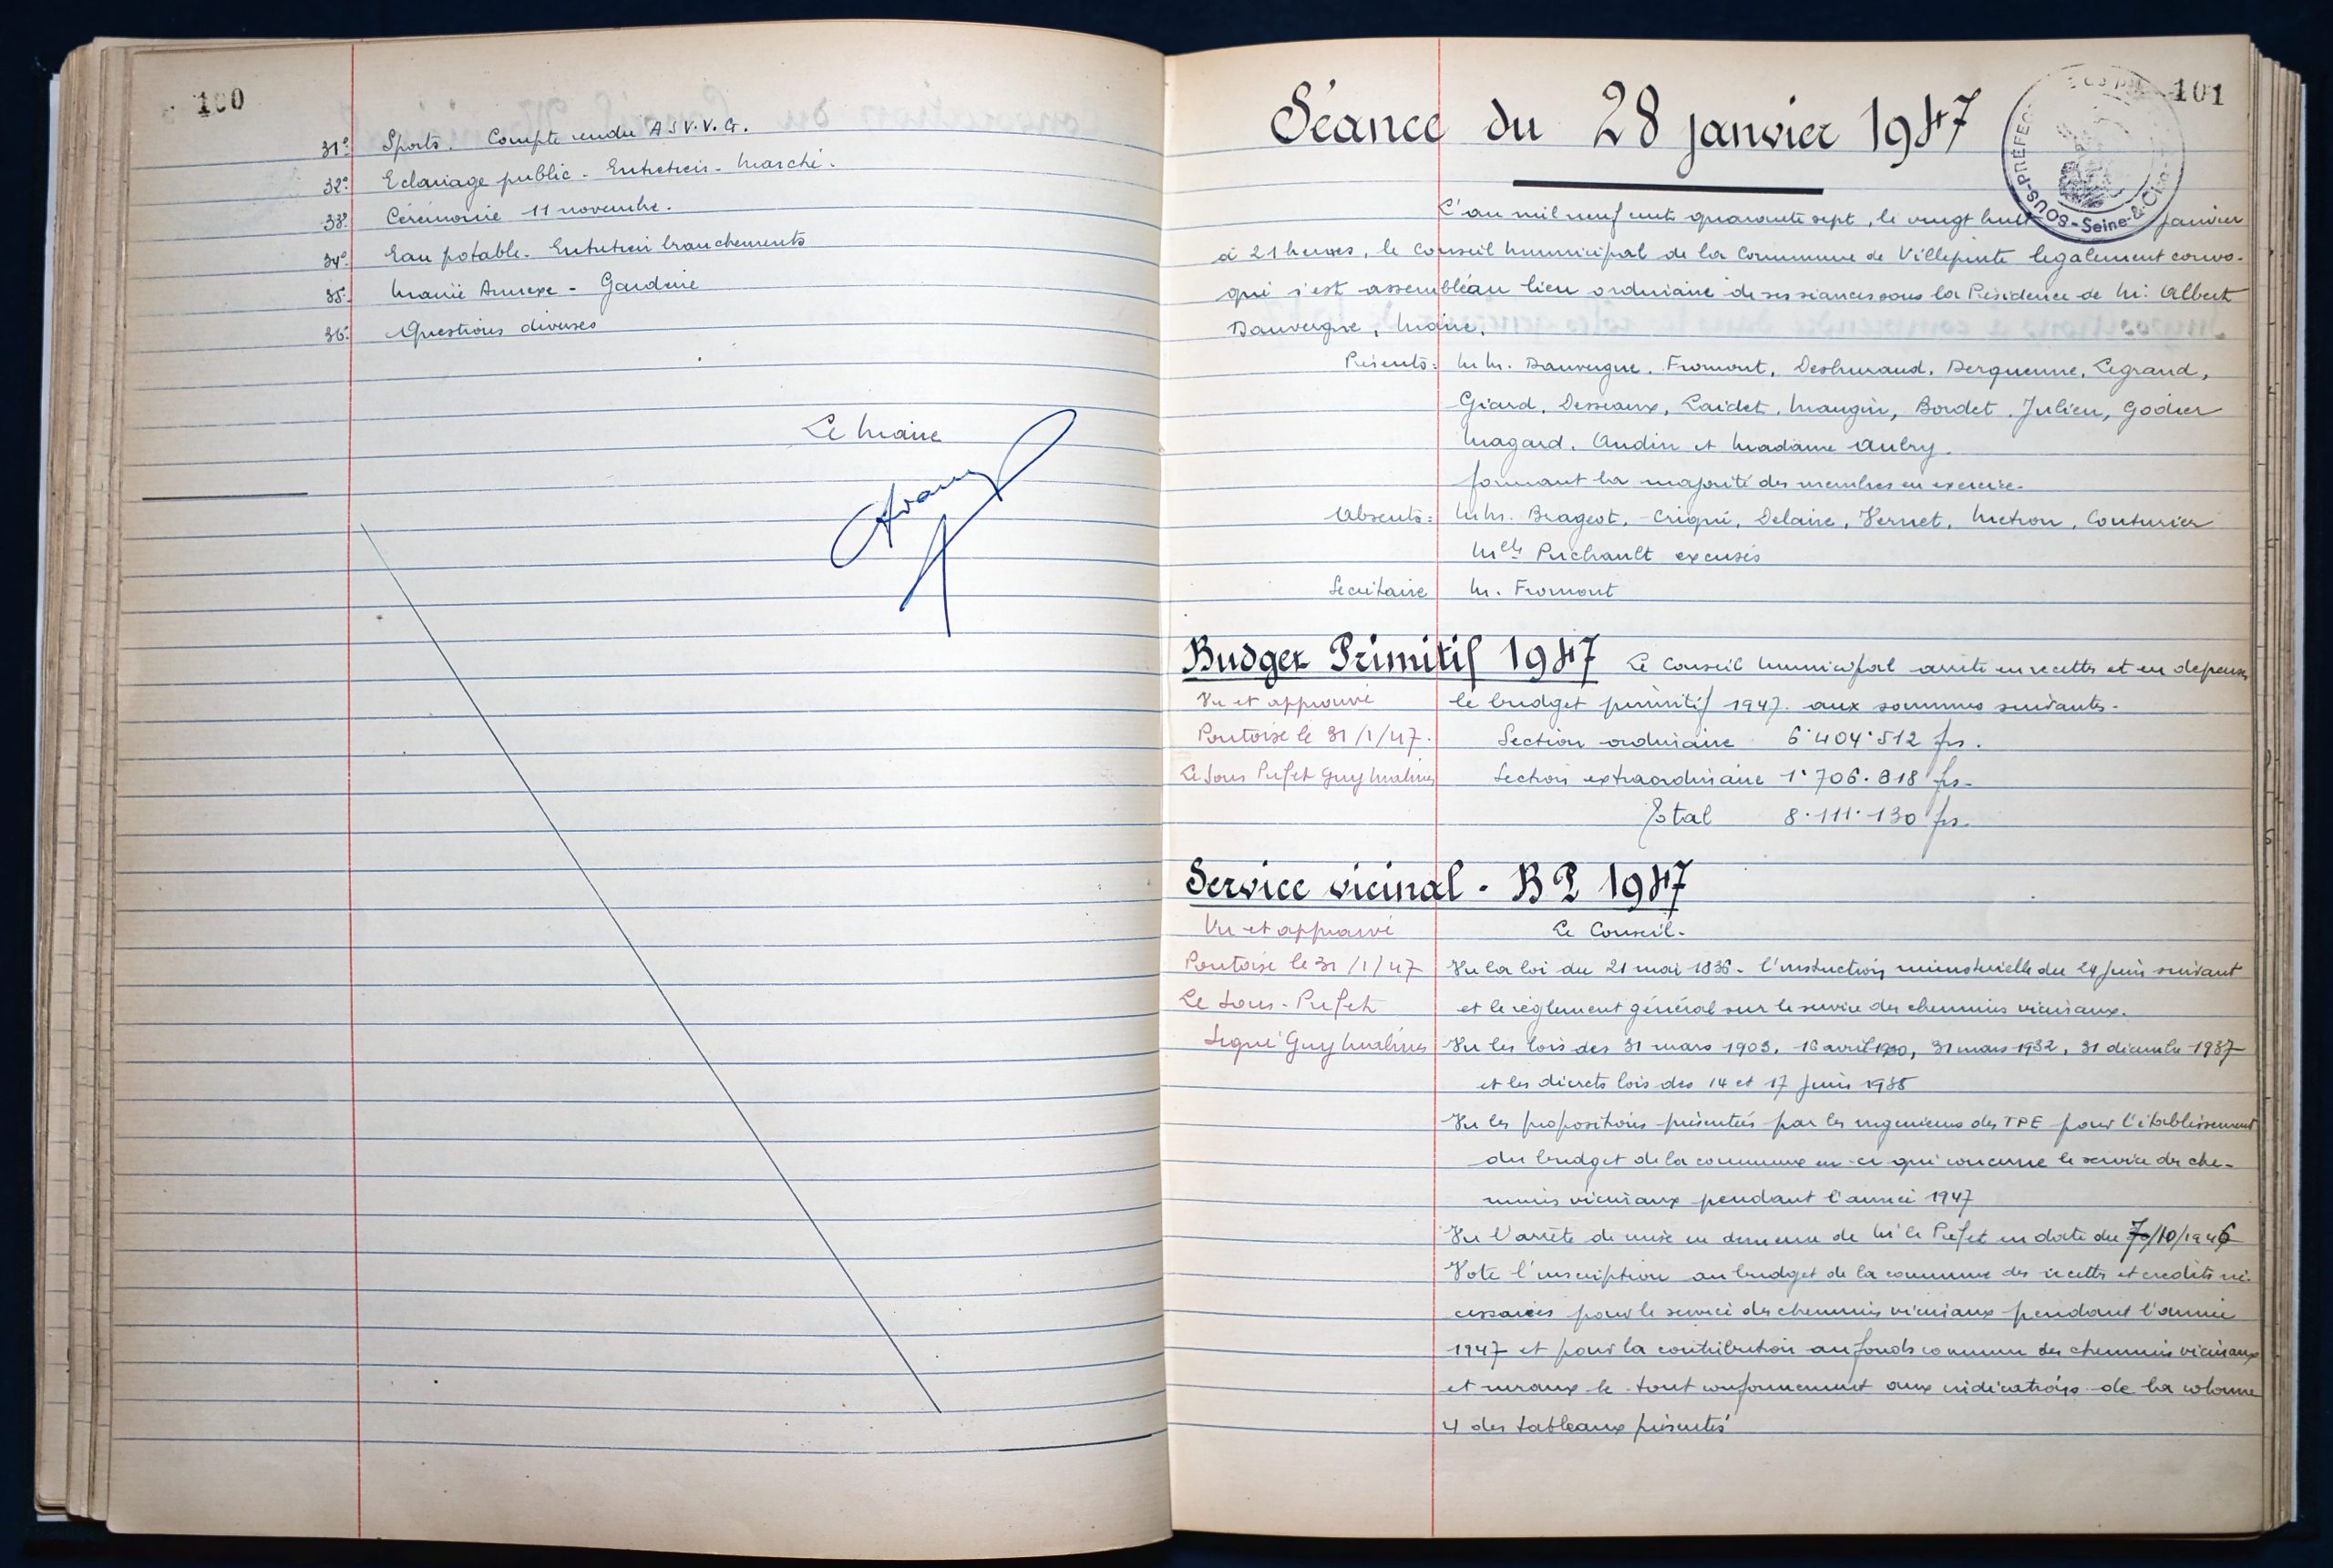 100
31° Sports. Compte rendu A S V. V. G.
32° Eclairage public - Entretien - Marché.
33° Cérémonie 11 novembre.
34° Eau potable - Entretien branchements
35° Mairie Annexe - Garderie
36° Questions diverses
Le Maire
101
Séance du 28 janvier 1947
SOUS-PRÉFEC
Seine-&-Oise
L'an mil neuf cent quarante sept, le vingt huit janvier
à 21 heures, le Conseil Municipal de la Commune de Villepinte légalement convo-
qué s'est assemblé au lieu ordinaire de ses séances sous la Présidence de M. Albert
Dauvergne, Maire.
Présents: MM. Dauvergne, Fromont, Deshuraud, Derquenne, Legrand,
Giard, Desseaux, Laidet, Maugin, Bordet, Julien, Godier
Magard, Audin et Madame Aubry.
formant la majorité des membres en exercice.
Absents: MM. Brageot, Criqui, Delaire, Vernet, Metron, Couturier
Melle Puchault excusés
Secrétaire M. Fromont
Budget Primitif 1947 Le Conseil Municipal arrête en recettes et en dépenses
Vu et approuvé le budget primitif 1947 aux sommes suivantes.
Pontoise le 31/1/47. Section ordinaire 6.404.512 frs.
Le Sous Préfet Guy Malines Section extraordinaire 1.706.818 frs.
Total 8.111.130 frs.
Service vicinal - B P 1947
Vu et approuvé Le Conseil.
Pontoise le 31/1/47 Vu la loi du 21 mai 1836 - l'instruction ministérielle du 24 juin suivant
Le Sous-Préfet et le règlement général sur le service des chemins vicinaux.
Signé Guy Malines Vu les lois des 31 mars 1903, 16 avril 1930, 31 mars 1932, 31 décembre 1937
et les décrets lois des 14 et 17 juin 1938
Vu les propositions présentées par les ingénieurs des TPE pour l'établissement
du budget de la commune en ce qui concerne le service des che-
mins vicinaux pendant l'année 1947
Vu l'arrêté de mise en demeure de M. le Préfet en date du 7/10/1946
Vote l'inscription au budget de la commune des recettes et crédits né-
cessaires pour le service des chemins vicinaux pendant l'année
1947 et pour la contribution au fonds commun des chemins vicinaux
et ruraux le tout conformément aux indications de la colonne
4 des tableaux présentés